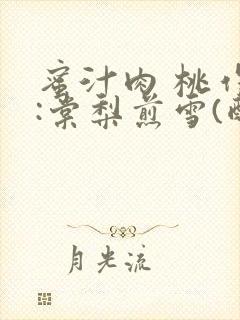 蜜汁肉桃作
:棠梨煎雪(酥
月光流